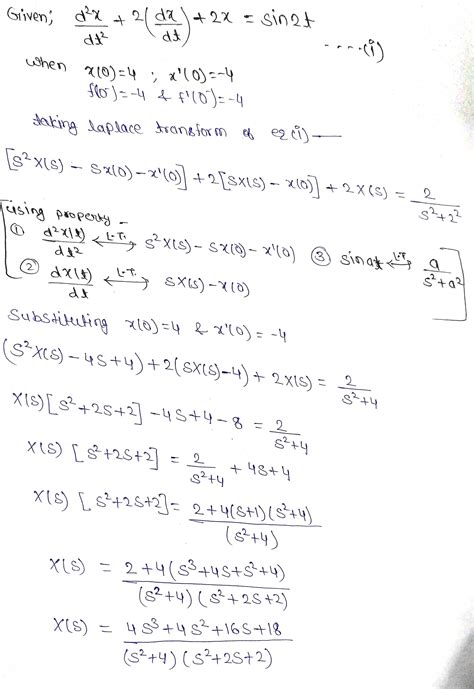 Given; d²x/dt² + 2(dx/dt) + 2x = sin2t
....(i)
when x(0)=4 ; x'(0)=-4
f(0⁻)=-4 & f'(0⁻)=-4
taking laplace transform of eq(i) —
[s²X(s) - sx(0) - x'(0)] + 2[sX(s) - x(0)] + 2X(s) = 2/(s²+2²)
using property -
① d²x(t)/dt² ←L.T.→ s²X(s) - sx(0) - x'(0) ③ sinat ←L.T→ a/(s²+a²)
② dx(t)/dt ←L.T.→ sX(s) - x(0)
Substituting x(0)=4 & x'(0) = -4
(s²X(s) - 4s+4) + 2(sX(s)-4) + 2X(s) = 2/(s²+4)
X(s)[s²+2s+2] - 4s+4-8 = 2/(s²+4)
X(s) [s²+2s+2] = 2/(s²+4) + 4s+4
X(s) [s²+2s+2] = 2+4(s+1)(s²+4)/(s²+4)
X(s) = 2+4(s³+4s+s²+4)/(s²+4)(s²+2s+2)
X(s) = 4s³+4s²+16s+18/(s²+4)(s²+2s+2)